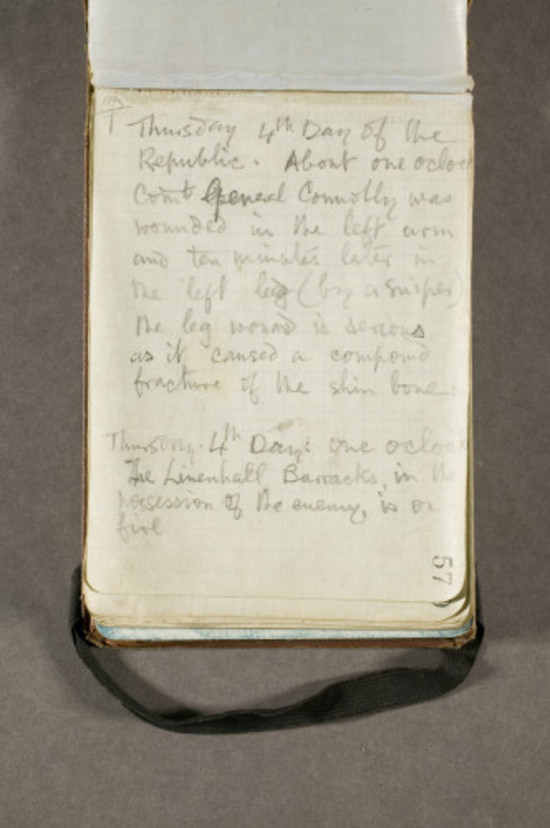 Thursday 4th Day of the
Republic. About one ocloc
Comt General Connolly was
wounded in the left arm
and ten minutes later in
the left leg (by a sniper)
the leg wound is serious
as it caused a compound
fracture of the shin bone.
Thursday. 4th Day: one ocloc
The Linenhall Barracks, in the
possession of the enemy, is on
fire
57